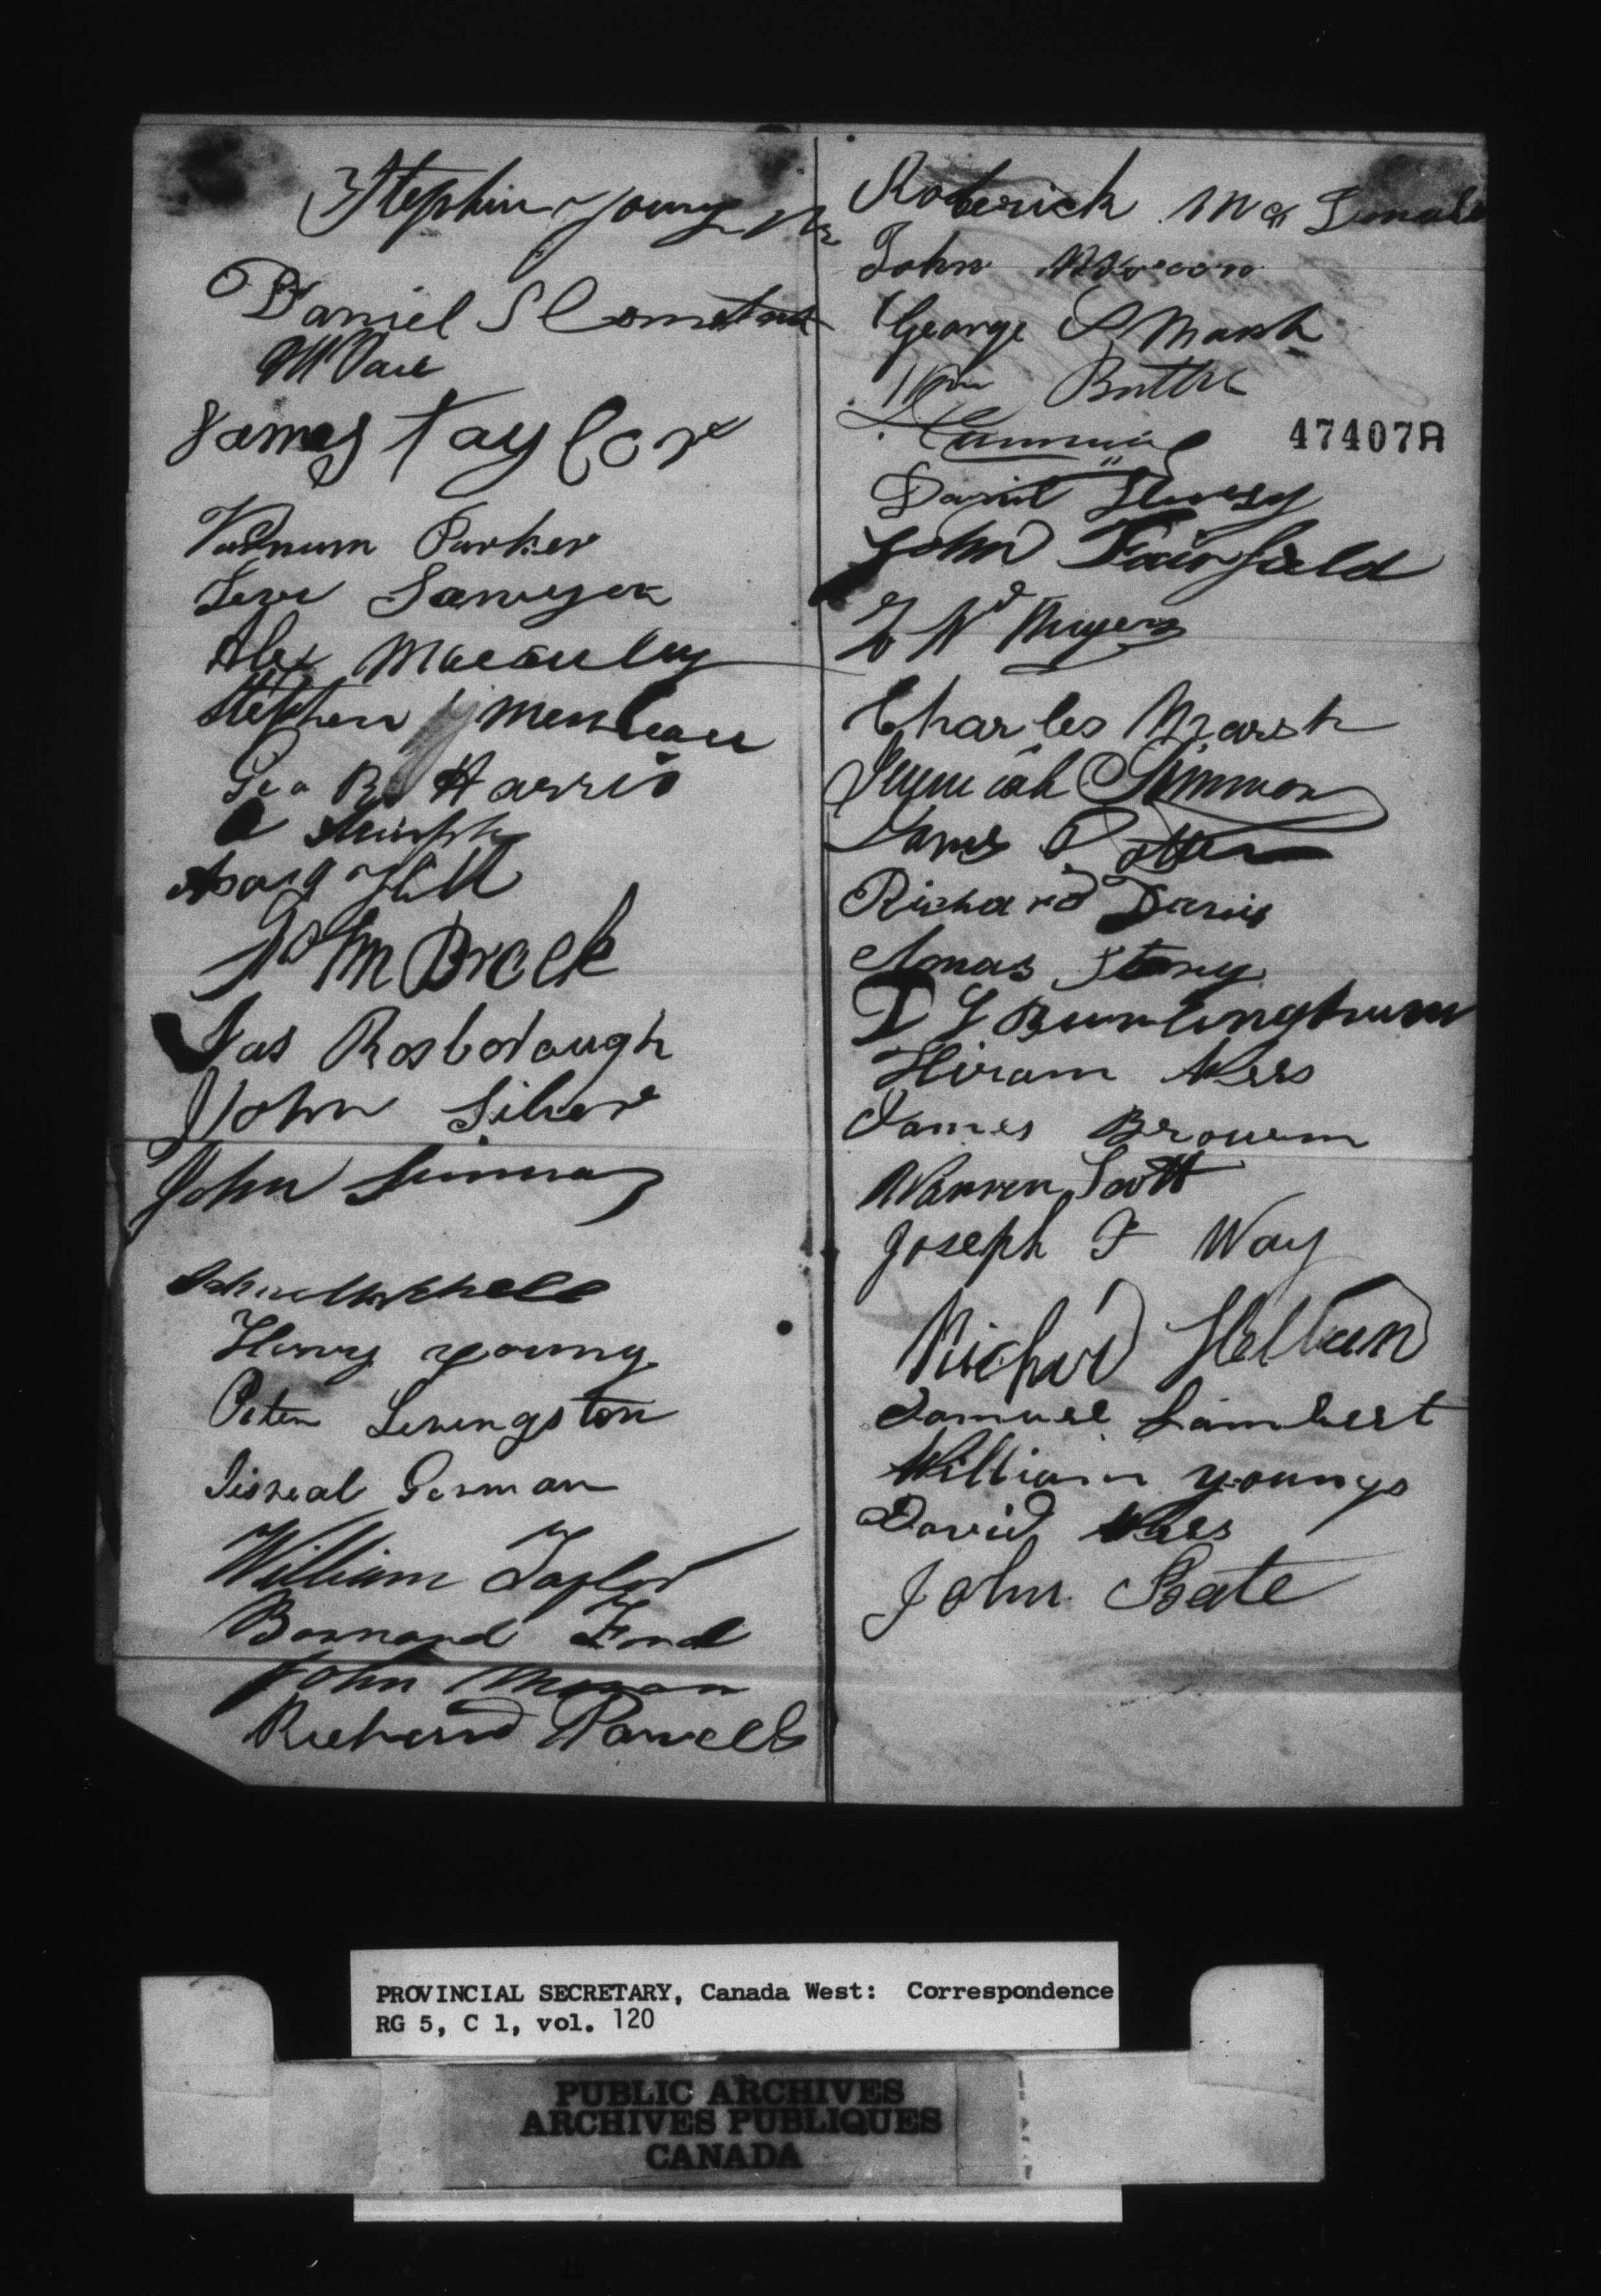 Stephen Young
Daniel S Comstock
James Taylor
Varnum Parker
Sawyer
Alex Macauley
Stephen
Geo B Harris
Murphy
Asa Hill
John Brock
Jas Rosborough
John Silver
John
John Mitchell
Henry young
Peter Livingston
Jisreal German
William Taylor
Barnard Ford
John
Richard Powell
Roderick
John
George S Marsh
Wm
Cumming
47407A
Daniel
John Fairfield
W Myers
Charles Marsh
Jeremiah Simmons
James Potter
Richard Davis
Amas Story
Burlingham
Hiram Wees
James Brown
Warren Scott
Joseph F Way
Richard
Samuel Lambert
William youngs
David Wees
John Bate
PROVINCIAL SECRETARY, Canada West: Correspondence
RG 5, C 1, vol. 120
PUBLIC ARCHIVES
ARCHIVES PUBLIQUES
CANADA